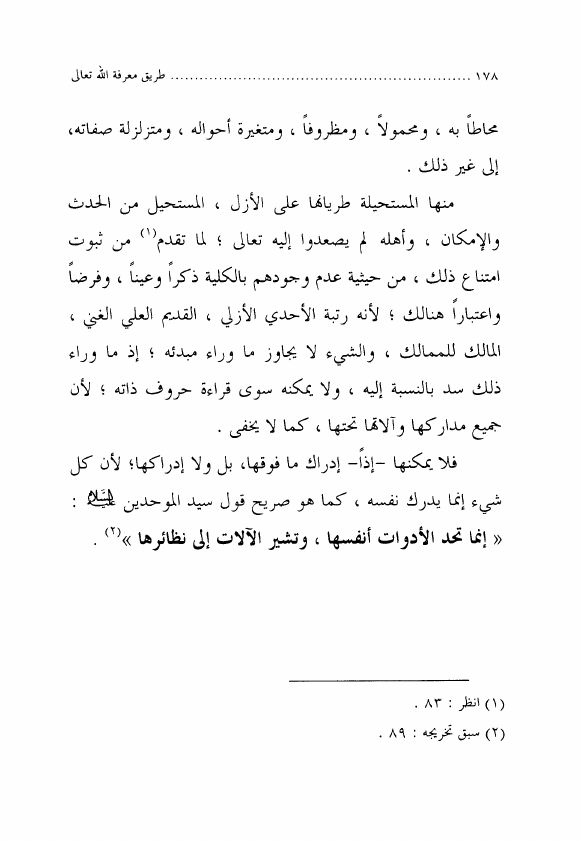 ١٧٨ ............................................................... طريق معرفة الله تعالى
محاطاً به ، ومحمولاً ، ومظروفاً ، ومتغيرة أحواله ، ومتزلزلة صفاته،
إلى غير ذلك .
منها المستحيلة طريانها على الأزل ، المستحيل من الحدث
والإمكان ، وأهله لم يصعدوا إليه تعالى ؛ لما تقدم(١) من ثبوت
امتناع ذلك ، من حيثية عدم وجودهم بالكلية ذكراً وعيناً ، وفرضاً
واعتباراً هنالك ؛ لأنه رتبة الأحدي الأزلي ، القديم العلي الغني ،
المالك للممالك ، والشيء لا يجاوز ما وراء مبدئه ؛ إذ ما وراء
ذلك سد بالنسبة إليه ، ولا يمكنه سوى قراءة حروف ذاته ؛ لأن
جميع مداركها وآلاتها تحتها ، كما لا يخفى .
فلا يمكنها –إذاً– إدراك ما فوقها، بل ولا إدراكها؛ لأن كل
شيء إنما يدرك نفسه ، كما هو صريح قول سيد الموحدين عليه السلام :
« إنما تحد الأدوات أنفسها ، وتشير الآلات إلى نظائرها »(٢) .
(١) انظر : ٨٣ .
(٢) سبق تخريجه : ٨٩ .